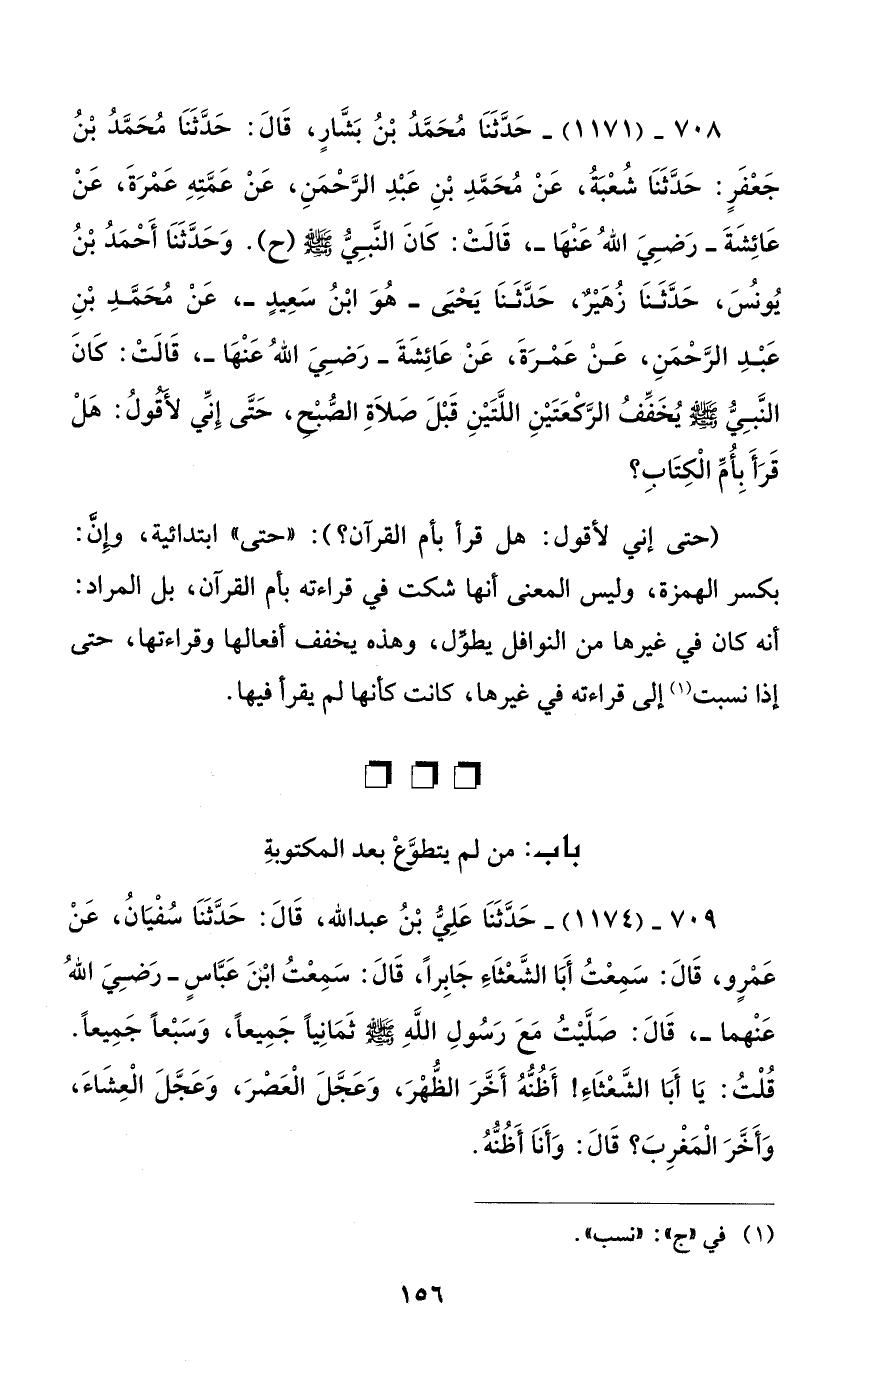 ٧٠٨ - (١١٧١) - حَدَّثَنَا مُحَمَّدُ بْنُ بَشَّارٍ، قَالَ: حَدَّثَنَا مُحَمَّدُ بْنُ
جَعْفَرٍ: حَدَّثَنَا شُعْبَةُ، عَنْ مُحَمَّدِ بْنِ عَبْدِ الرَّحْمَنِ، عَنْ عَمَّتِهِ عَمْرَةَ، عَنْ
عَائِشَةَ - رَضِيَ اللهُ عَنْهَا -، قَالَتْ: كَانَ النَّبِيُّ ﷺ (ح). وَحَدَّثَنَا أَحْمَدُ بْنُ
يُونُسَ، حَدَّثَنَا زُهَيْرٌ، حَدَّثَنَا يَحْيَى - هُوَ ابْنُ سَعِيدٍ -، عَنْ مُحَمَّدِ بْنِ
عَبْدِ الرَّحْمَنِ، عَنْ عَمْرَةَ، عَنْ عَائِشَةَ - رَضِيَ اللهُ عَنْهَا -، قَالَتْ: كَانَ
النَّبِيُّ ﷺ يُخَفِّفُ الرَّكْعَتَيْنِ اللَّتَيْنِ قَبْلَ صَلاَةِ الصُّبْحِ، حَتَّى إِنِّي لأَقُولُ: هَلْ
قَرَأَ بِأُمِّ الْكِتَابِ؟
(حتى إني لأقول: هل قرأ بأم القرآن؟): «حتى» ابتدائية، وإنَّ:
بكسر الهمزة، وليس المعنى أنها شكت في قراءته بأم القرآن، بل المراد:
أنه كان في غيرها من النوافل يطوِّل، وهذه يخفف أفعالها وقراءتها، حتى
إذا نسبت(١) إلى قراءته في غيرها، كانت كأنها لم يقرأ فيها.
باب: من لم يتطوَّعْ بعد المكتوبةِ
٧٠٩ - (١١٧٤) - حَدَّثَنَا عَلِيُّ بْنُ عبدالله، قَالَ: حَدَّثَنَا سُفْيَانُ، عَنْ
عَمْرٍو، قَالَ: سَمِعْتُ أَبَا الشَّعْثَاءِ جَابِراً، قَالَ: سَمِعْتُ ابْنَ عَبَّاسٍ - رَضِيَ اللهُ
عَنْهما -، قَالَ: صَلَّيْتُ مَعَ رَسُولِ اللَّهِ ﷺ ثَمَانِياً جَمِيعاً، وَسَبْعاً جَمِيعاً.
قُلْتُ: يَا أَبَا الشَّعْثَاءِ! أَظُنُّهُ أَخَّرَ الظُّهْرَ، وَعَجَّلَ الْعَصْرَ، وَعَجَّلَ الْعِشَاءَ،
وَأَخَّرَ الْمَغْرِبَ؟ قَالَ: وَأَنَا أَظُنُّهُ.
(١) في «ج»: «نسب».
١٥٦